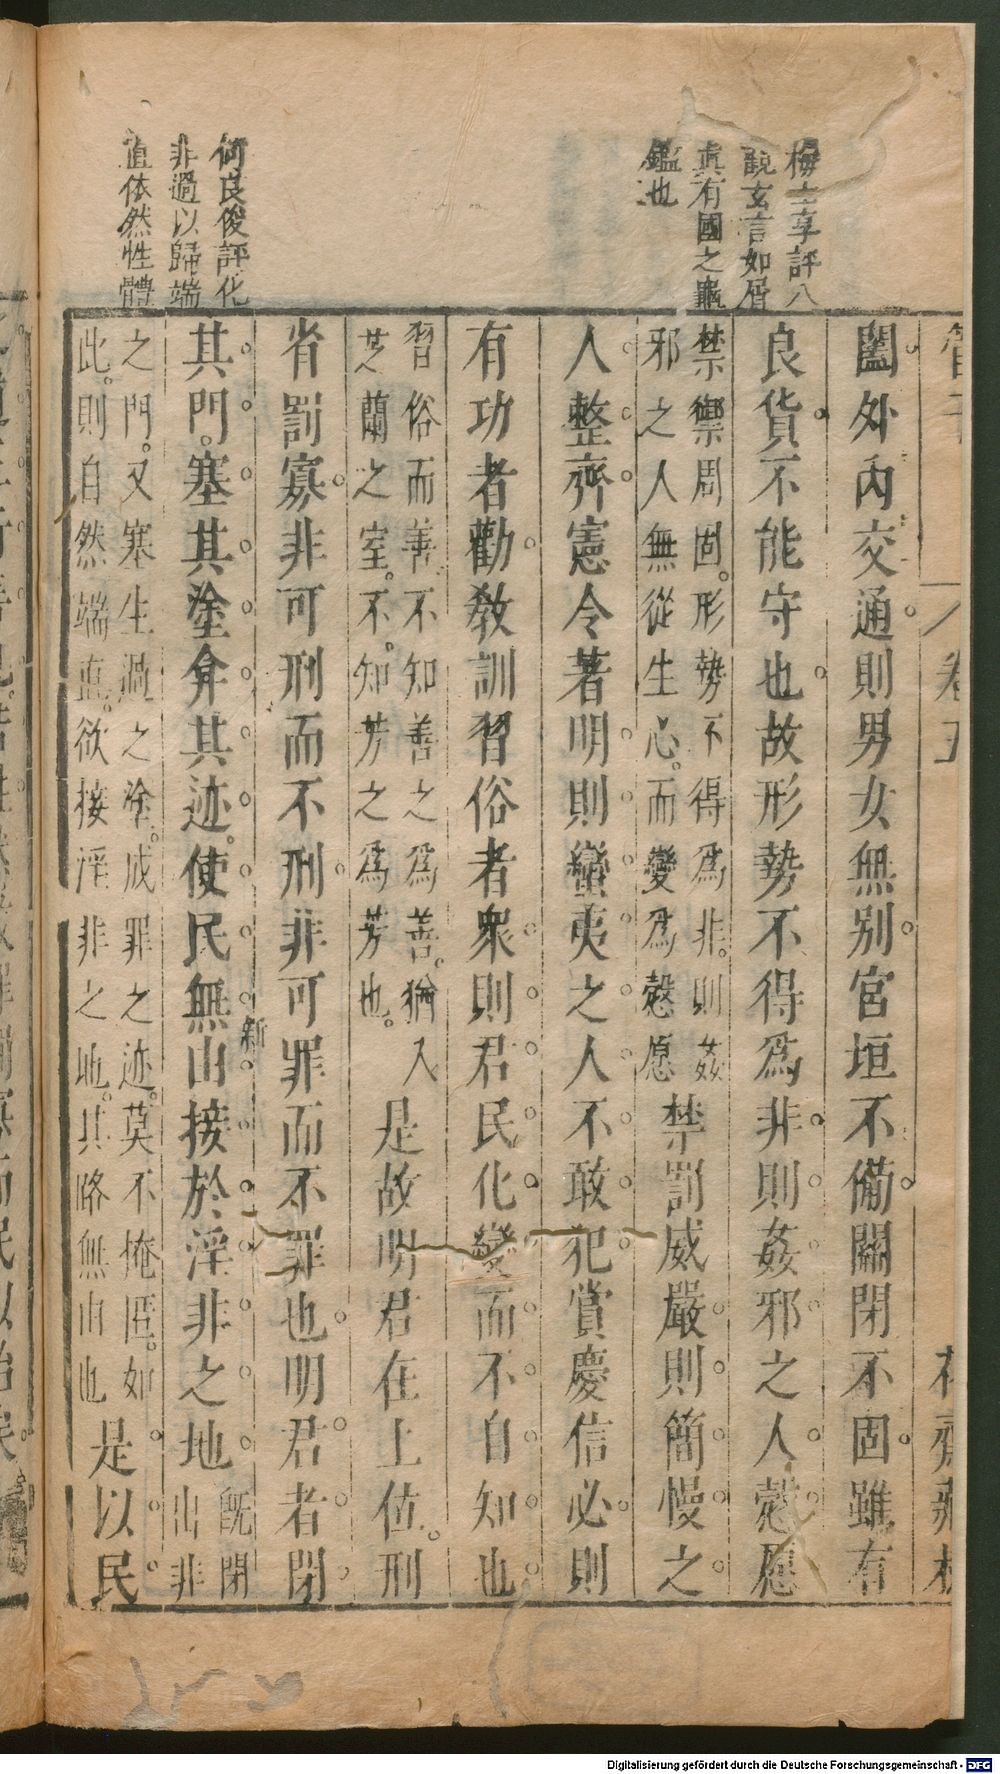 管子
卷五
花齋藏板
梅士享評八
觀玄言如屑
真有國之龜
鑑也
闔外內交通則男女無別宮垣不備關閉不固雖有
良貨不能守也故形勢不得為非則姦邪之人慤愿
禁禦周固。形勢不得為非。則姦
邪之人無從生心。而變為慤愿
禁罰威嚴則簡慢之
人整齊憲令著明則蠻夷之人不敢犯賞慶信必則
有功者勸教訓習俗者衆則君民化變而不自知也
習俗而善。不知善之為善。猶入
芝蘭之室。不知芳之為芳也。
是故明君在上位刑
省罰寡非可刑而不刑非可罪而不罪也明君者閉
何良俊評化
非過以歸端
直依然性體
其門塞其塗弇其迹使民無由接於淫非之地
既閉
出非
之門。又塞生過之塗。成罪之迹。莫不掩匿。如
此。則自然端直。欲接淫非之地。其路無由也
是以民
新
Digitalisierung gefördert durch die Deutsche Forschungsgemeinschaft - DFG